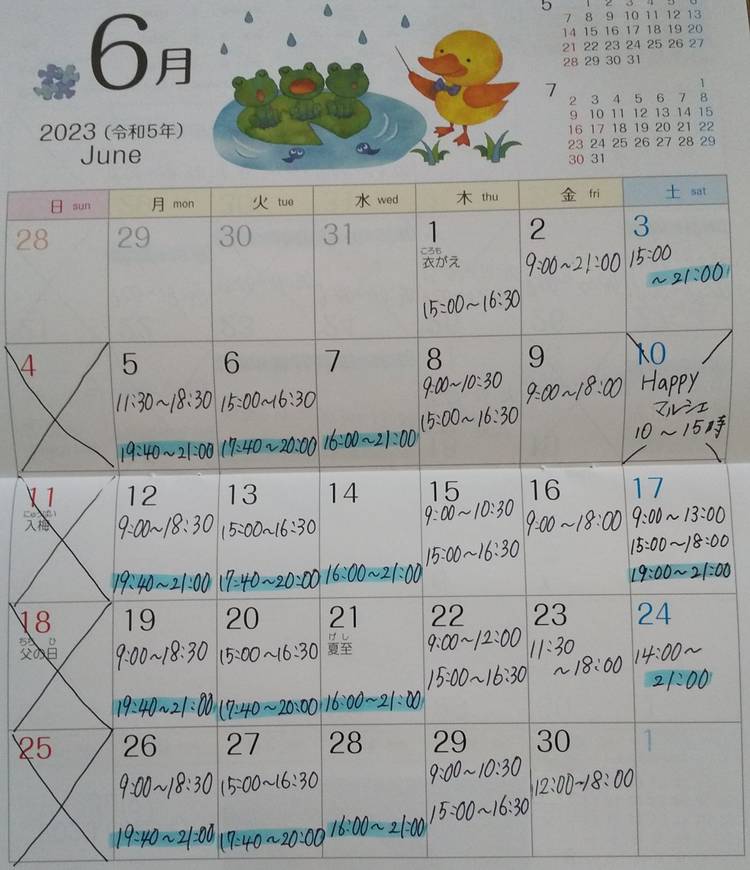 6月
2023（令和5年）
June
5
1 2 3 4 5 6
7 8 9 10 11 12 13
14 15 16 17 18 19 20
21 22 23 24 25 26 27
28 29 30 31
7
1
2 3 4 5 6 7 8
9 10 11 12 13 14 15
16 17 18 19 20 21 22
23 24 25 26 27 28 29
30 31
日 sun 月 mon 火 tue 水 wed 木 thu 金 fri 土 sat
28 29 30 31 1 2 3
ころも
衣がえ
15:00~16:30
9:00~21:00
15:00
~21:00
4 5 6 7 8 9 10
11:30~18:30
19:40~21:00
15:00~16:30
17:40~20:00
16:00~21:00
9:00~10:30
15:00~16:30
9:00~18:00
Happy
マルシェ
10~15時
11 12 13 14 15 16 17
にゅうばい
入梅
9:00~18:30
19:40~21:00
15:00~16:30
17:40~20:00
16:00~21:00
9:00~10:30
15:00~16:30
9:00~18:00
9:00~13:00
15:00~18:00
19:00~21:00
18 19 20 21 22 23 24
ちち ひ
父の日
9:00~18:30
19:40~21:00
15:00~16:30
17:40~20:00
げし
夏至
16:00~21:00
9:00~12:00
15:00~16:30
11:30
~18:00
14:00~
21:00
25 26 27 28 29 30 1
9:00~18:30
19:40~21:00
15:00~16:30
17:40~20:00
16:00~21:00
9:00~10:30
15:00~16:30
12:00~18:00